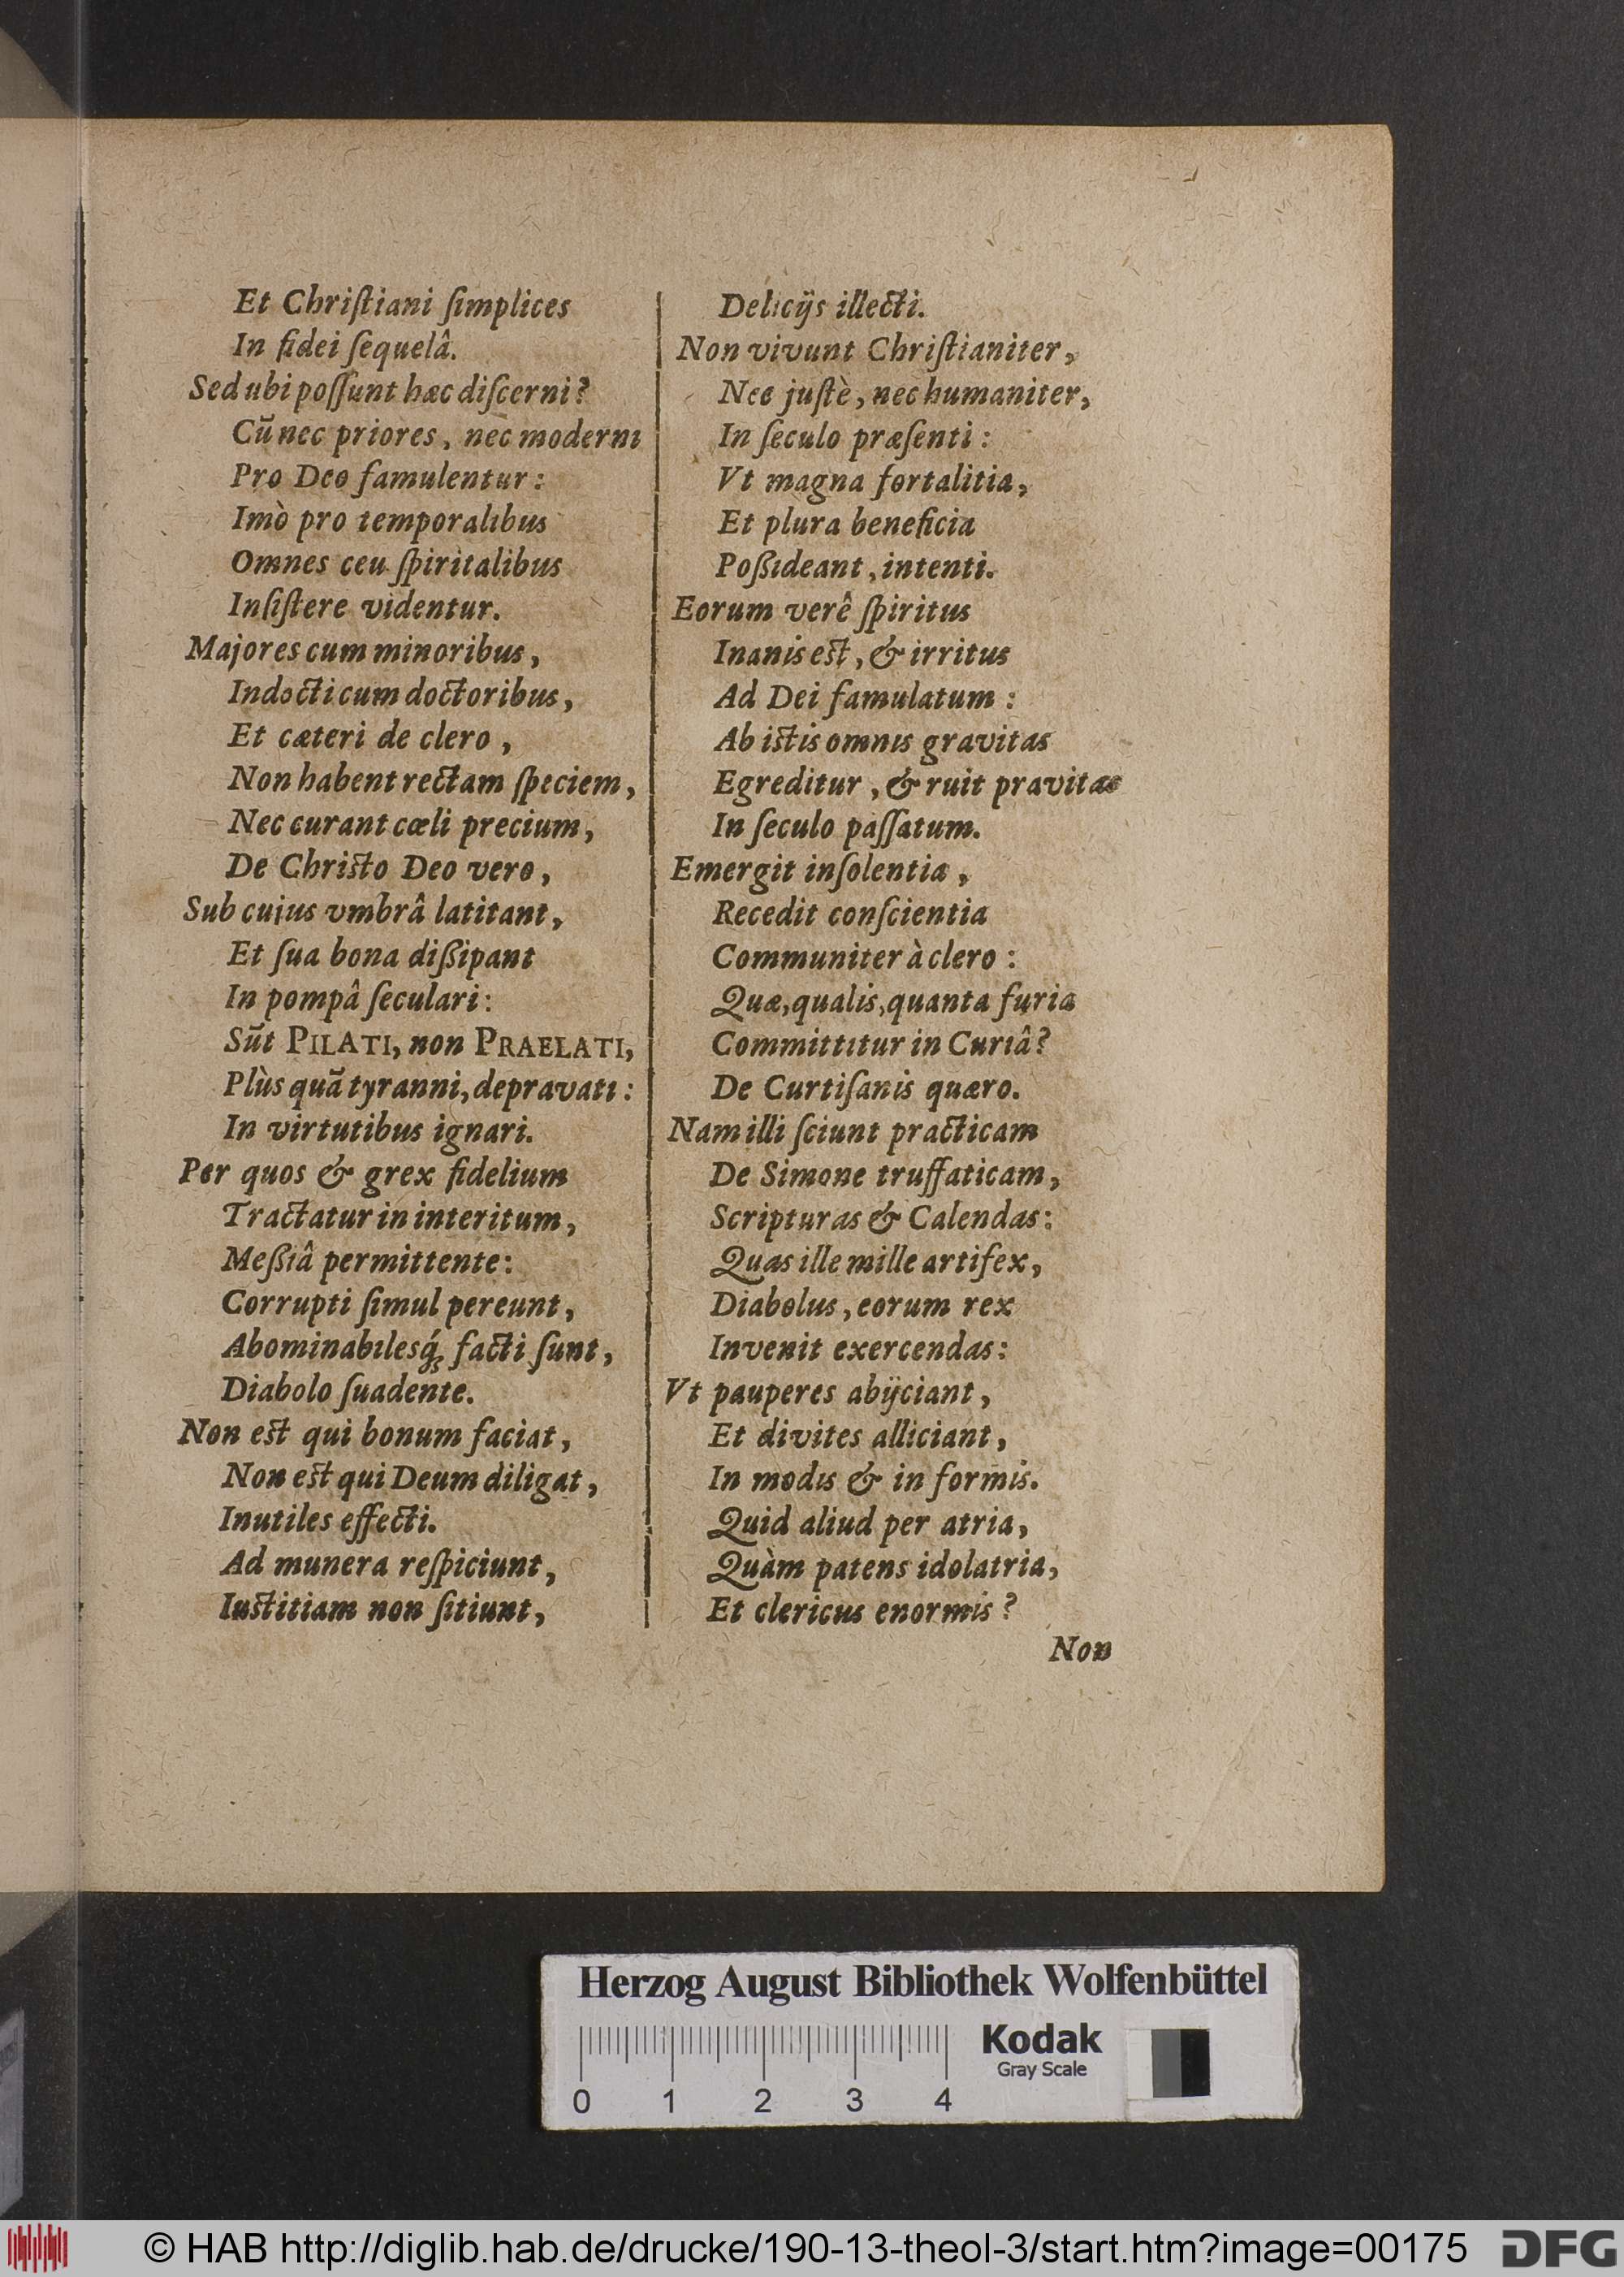 Et Chriſtiani ſimplices
In fidei ſequelâ.
Sed ubi poſſunt hæc diſcerni?
Cũ nec priores, nec moderni
Pro Deo famulentur:
Imò pro temporalibus
Omnes ceu ſpiritalibus
Inſiſtere videntur.
Majores cum minoribus,
Indocti cum doctoribus,
Et cæteri de clero,
Non habent rectam ſpeciem,
Nec curant cœli precium,
De Christo Deo vero,
Sub cuius vmbrâ latitant,
Et ſua bona dißipant
In pompâ ſeculari:
Sũt PILATI, non PRAELATI,
Plùs quã tyranni, depravati:
In virtutibus ignari.
Per quos & grex fidelium
Tractatur in interitum,
Meßiâ permittente:
Corrupti ſimul pereunt,
Abominabilesq́ꝫ facti ſunt,
Diabolo ſuadente.
Non est qui bonum faciat,
Non est qui Deum diligat,
Inutiles effecti.
Ad munera reſpiciunt,
Iustitiam non ſitiunt,
Delicijs illecti.
Non vivunt Chriſtianiter,
Nec juſtè, nec humaniter,
In ſeculo præſenti:
Vt magna fortalitia,
Et plura beneficia
Poßideant, intenti.
Eorum verê ſpiritus
Inanis est, & irritus
Ad Dei famulatum:
Ab istis omnis gravitas
Egreditur, & ruit pravitas
In ſeculo paſſatum.
Emergit inſolentia,
Recedit conſcientia
Communiter à clero:
Quæ, qualis, quanta furia
Committitur in Curiâ?
De Curtiſanis quæro.
Nam illi ſciunt practicam
De Simone truffaticam,
Scripturas & Calendas:
Quas ille mille artifex,
Diabolus, eorum rex
Invenit exercendas:
Vt pauperes abijciant,
Et divites alliciant,
In modis & in formis.
Quid aliud per atria,
Quàm patens idolatria,
Et clericus enormis?
Non
Herzog August Bibliothek Wolfenbüttel
Kodak
Gray Scale
0 1 2 3 4
© HAB http://diglib.hab.de/drucke/190-13-theol-3/start.htm?image=00175
DFG